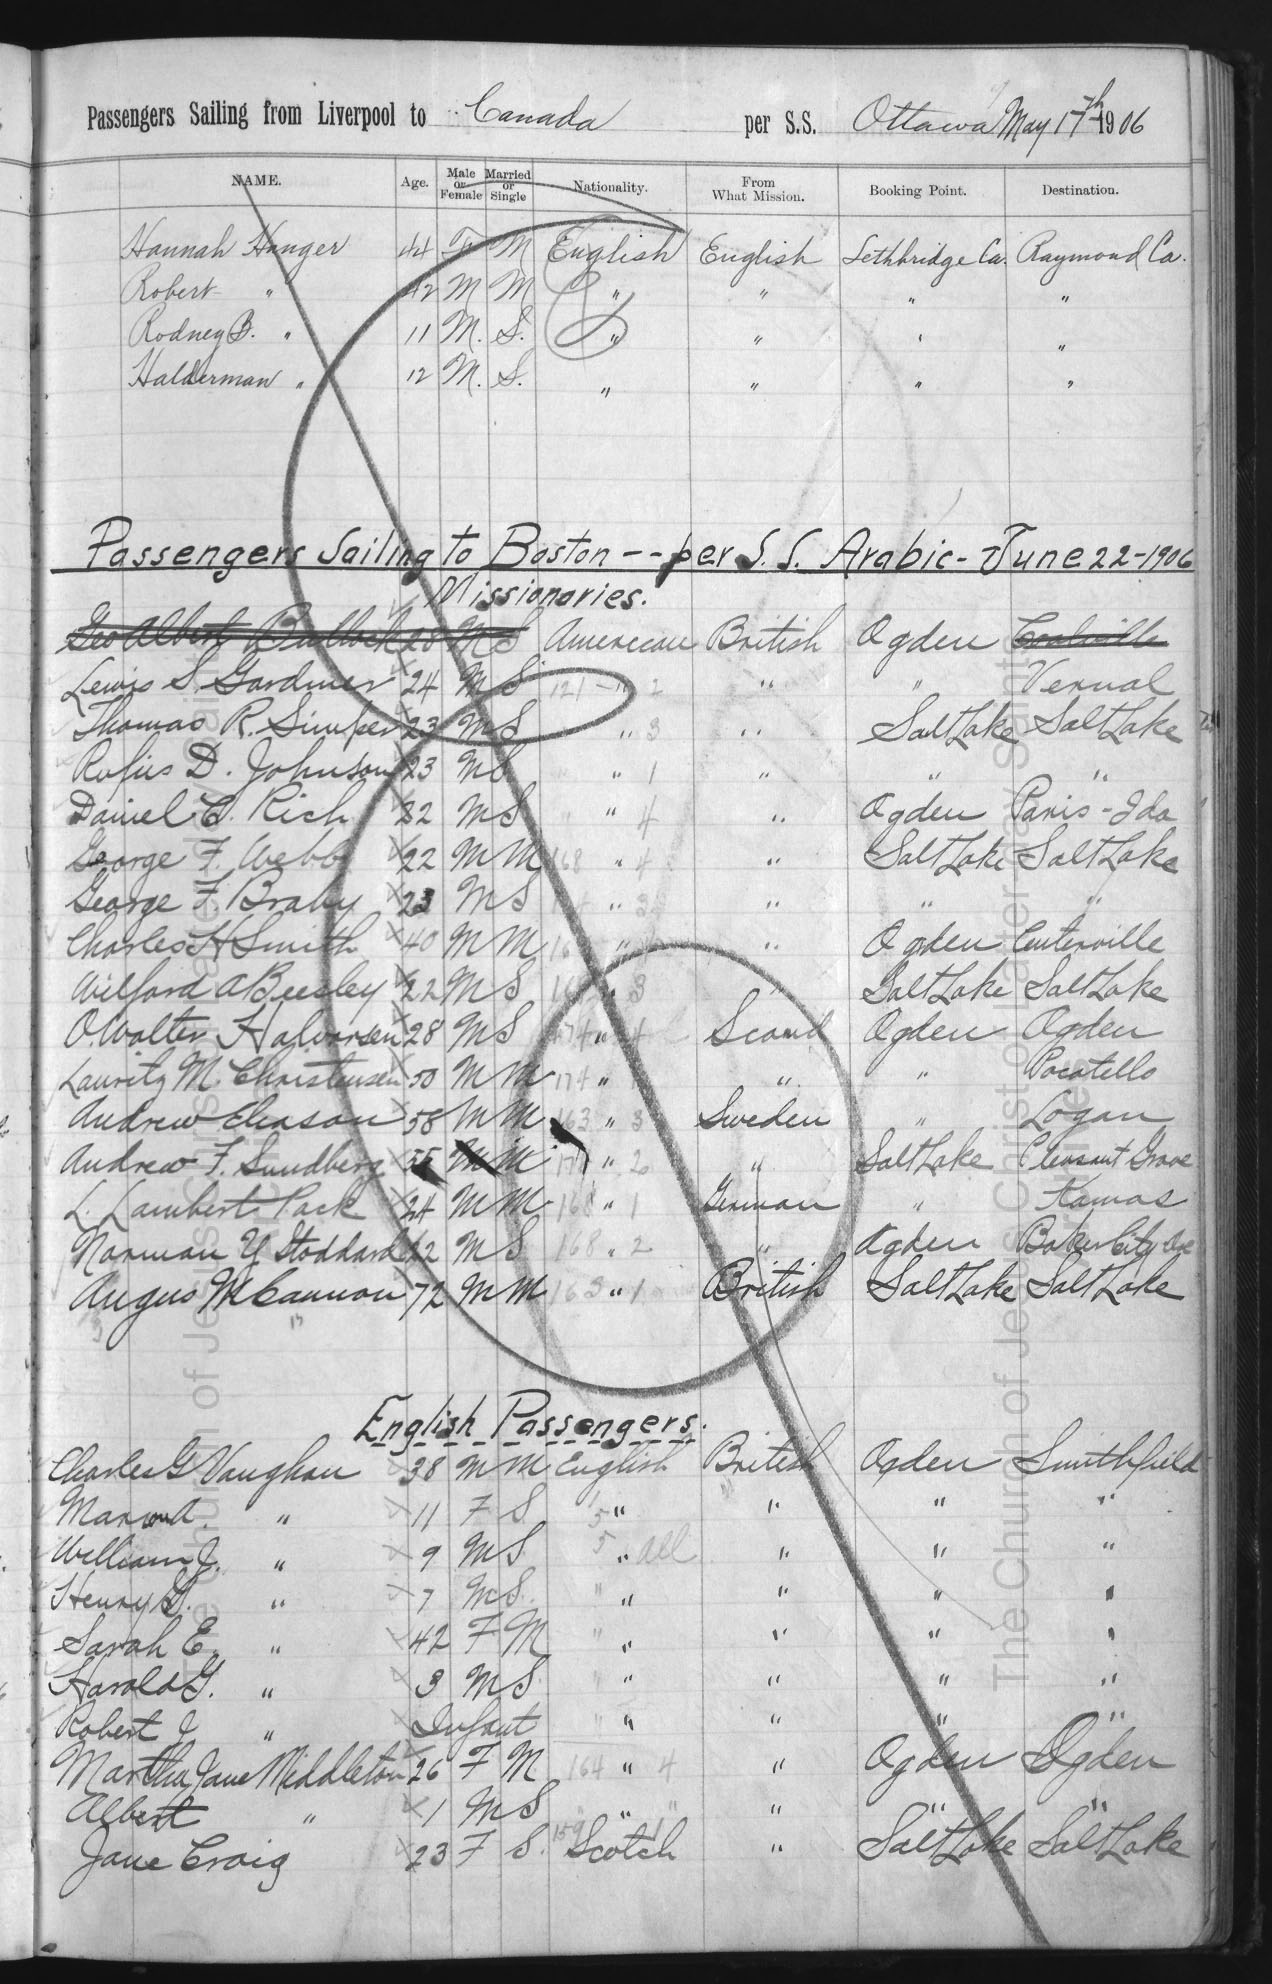 Passengers Sailing from Liverpool to Canada per S.S. Ottawa May 17th 1906
NAME. Age. Male or Female Married or Single Nationality. From What Mission. Booking Point. Destination.
Hannah Hanger 44 F M English English Lethbridge Ca. Raymond Ca.
Robert " 42 M M " " " "
Rodney B. " 11 M. S. " " " "
Halderman " 12 M. S. " " " "
Passengers Sailing to Boston -- per S.S. Arabic - June 22-1906
Missionaries.
Geo Albert Bullock 28 M S American British Ogden Coalville
Lewis S. Gardner 24 M S 121 " 2 " " Vernal
Thomas R. Simper 23 M S " 3 " Salt Lake Salt Lake
Rufus D. Johnson 23 M S " 1 " " "
Daniel C. Rich 32 M S " 4 " Ogden Paris - Ida
George F. Webb 22 M M 168 " 4 " Salt Lake Salt Lake
George F. Braby 23 M S " 3 " " "
Charles H Smith 40 M M " " Ogden Centerville
Wilford A Beesley 22 M S " 3 " Salt Lake Salt Lake
O. Walter Halvorsen 28 M S 174 " 4 Scand Ogden Ogden
Lauritz M. Christensen 50 M M 174 " " " Pocatello
Andrew Eliason 58 M M 163 " 3 Sweden " Logan
Andrew F. Sundberg 55 M M " 2 " Salt Lake Pleasant Grove
L. Lambert Pack 24 M M 168 " 1 German " Kamas
Norman Y Stoddard M S 168 " 2 " Ogden Baker City Ore
Angus M Cannon 72 M M 163 " 1 British Salt Lake Salt Lake
English Passengers.
Charles G Vaughan 38 M M English British Ogden Smithfield
Marion A. " 11 F S 5 " " " "
William J. " 9 M S 5 " all " " "
Henry G. " 7 M S. " " " "
Sarah E. " 42 F M " " " "
Harold G. " 3 M S " " " "
Robert J " Infant " " " "
Martha Jane Middleton 26 F M 164 " 4 " Ogden Ogden
Albert " 1 M S " " " " "
Jane Craig 23 F S. 159 Scotch 1 " Salt Lake Salt Lake
The Church of Jesus Christ of Latter-day Saints
The Church of Jesus Christ of Latter-day Saints